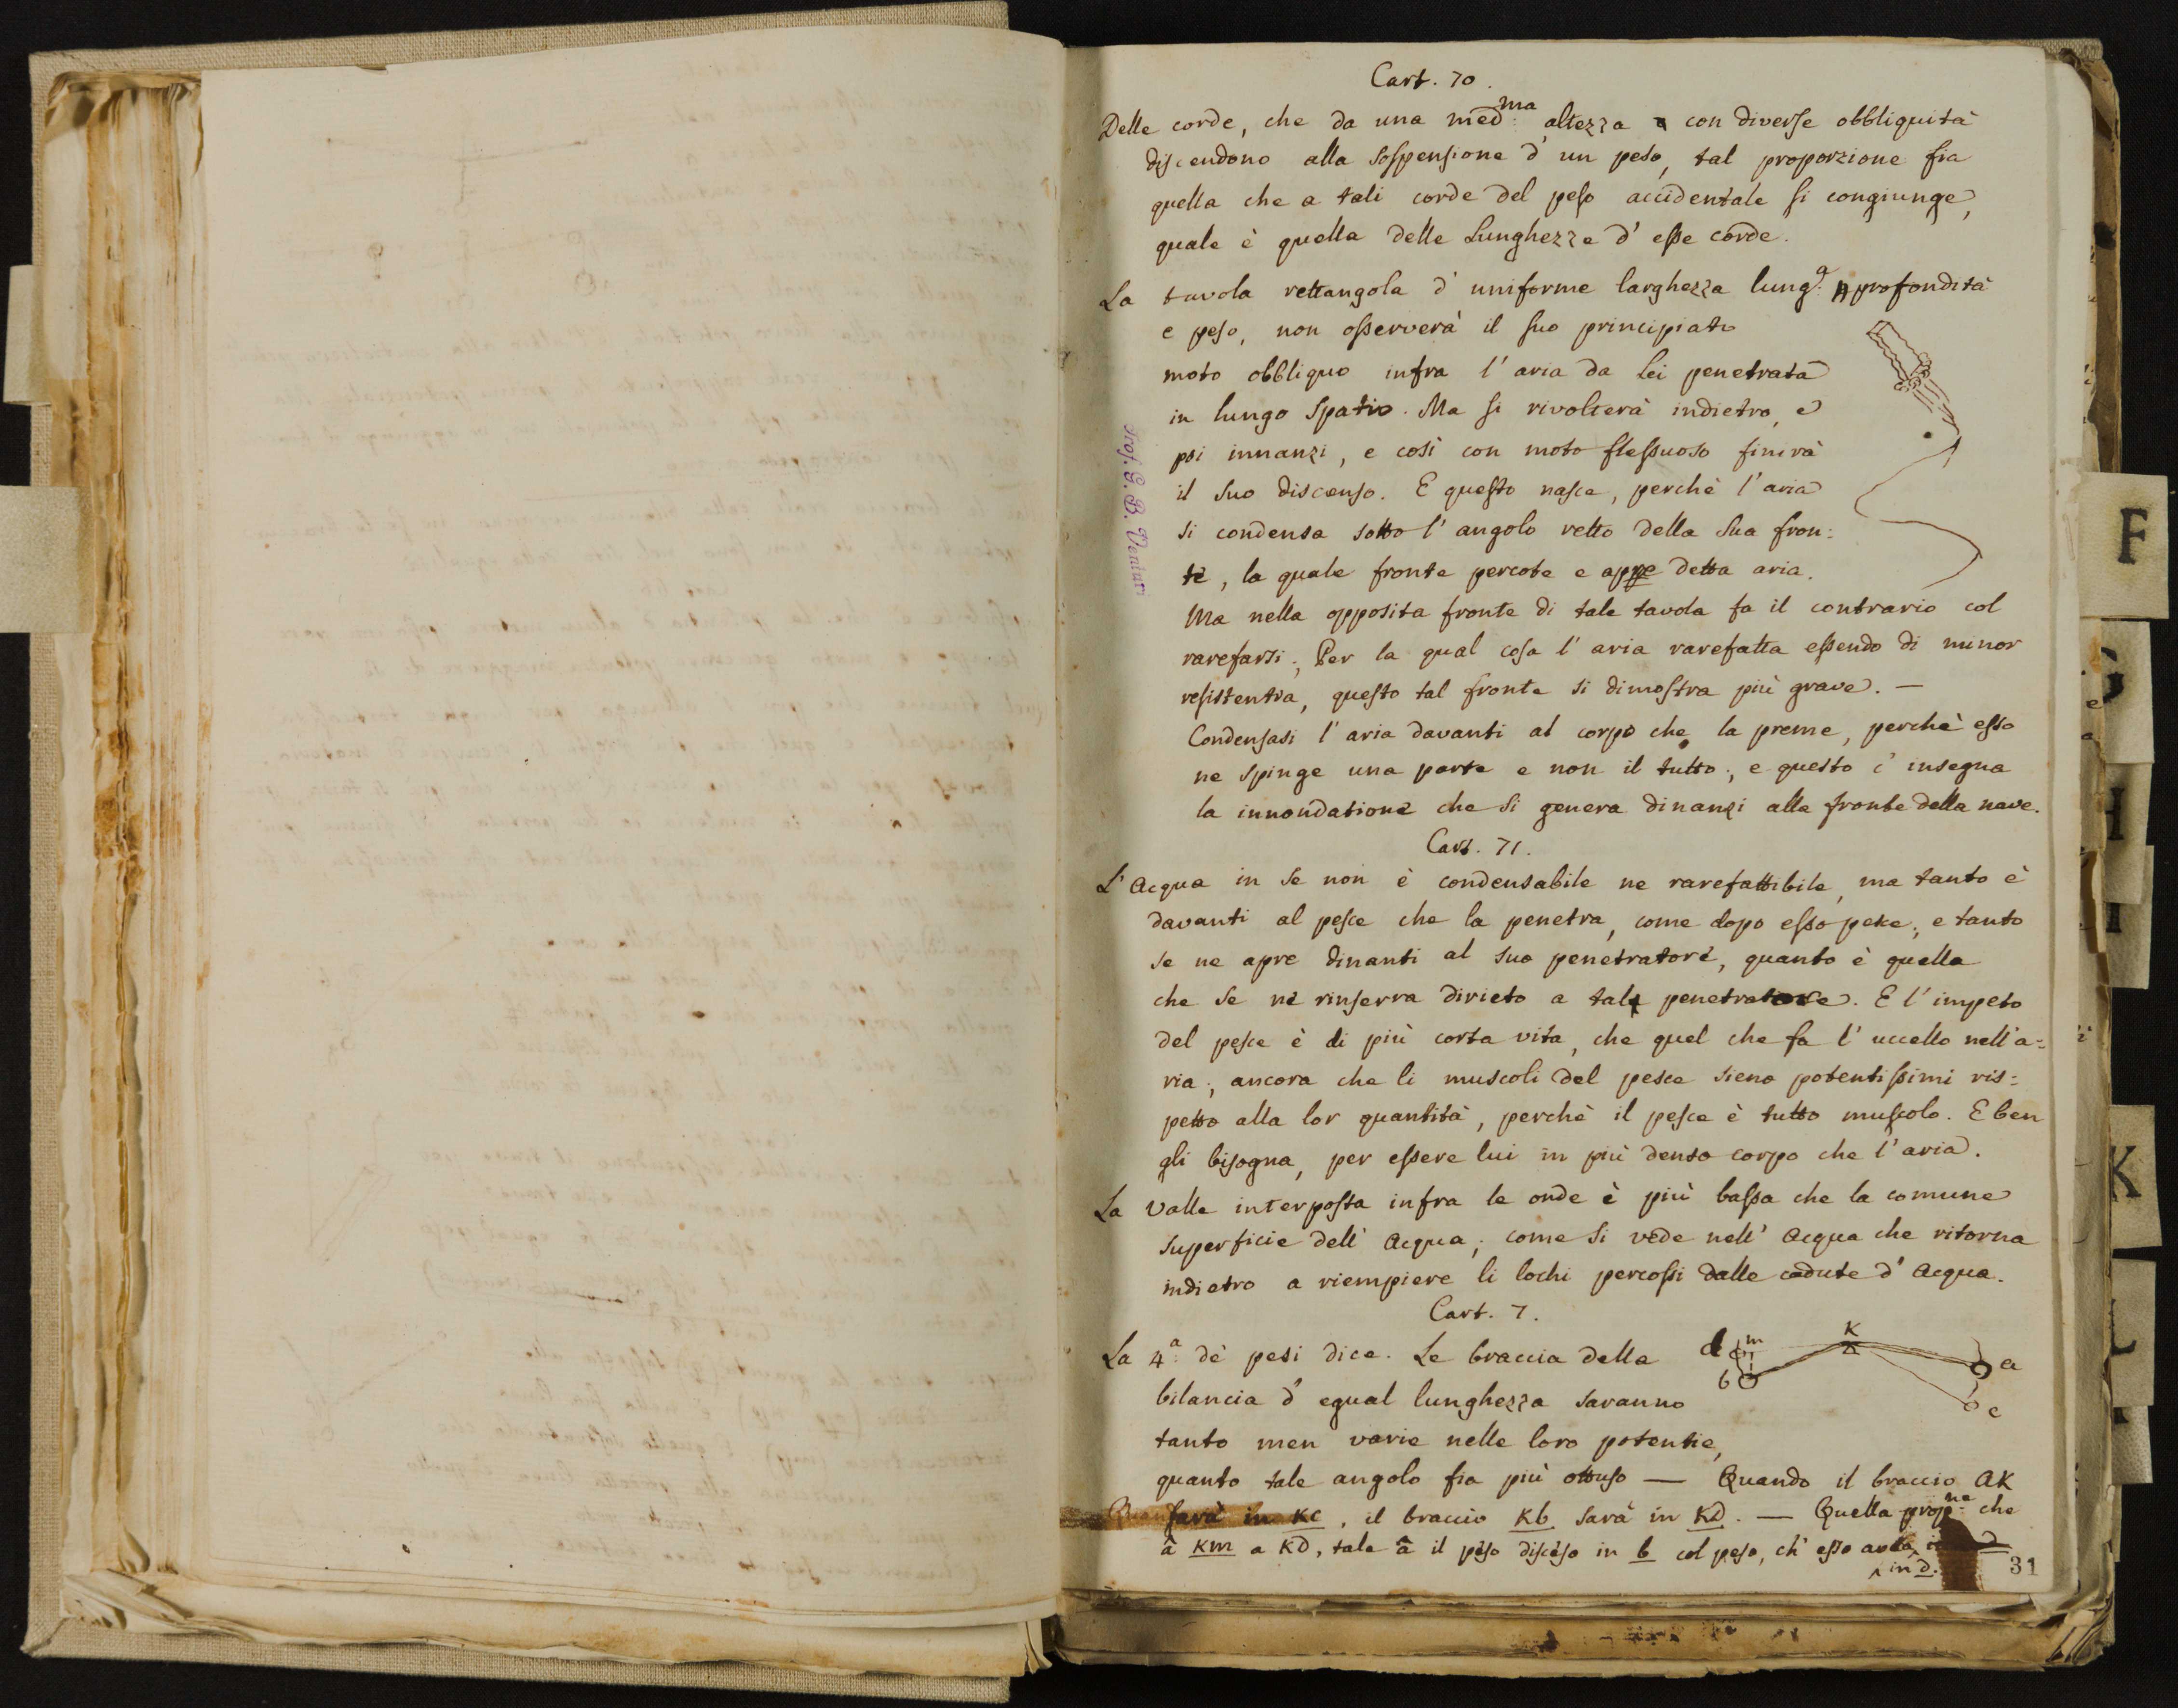 Cart. 70.
Delle corde, che da una med:ma altezza con diverse obbliquità
discendono alla sospensione d'un peso, tal proporzione fia
quella che a tali corde del peso accidentale si congiunge,
quale è quella delle Lunghezze d'esse corde.
La tavola rettangola d'uniforme larghezza lung:a profondità
e peso, non osserverà il suo principiato
moto obbliquo infra l'aria da Lei penetrata
in lungo Spatio. Ma si rivolterà indietro, e
poi innanzi, e così con moto flessuoso finirà
il suo discenso. E questo nasce, perchè l'aria
si condensa sotto l'angolo retto della sua fron:
te, la quale fronte percote e appe detta aria.
Ma nella opposita fronte di tale tavola fa il contrario col
rarefarsi; Per la qual cosa l'aria rarefatta essendo di minor
resistentia, questo tal fronte si dimostra più grave. —
Condensasi l'aria davanti al corpo che la preme, perchè esso
ne spinge una parte e non il tutto; e questo c'insegna
la innondatione che si genera dinanzi alla fronte della nave.
Cart. 71.
L'Acqua in se non è condensabile ne rarefattibile, ma tanto è
davanti al pesce che la penetra, come dopo esso pesce; e tanto
se ne apre dinanti al suo penetratore, quanto è quella
che se ne rinserra dirieto a tale penetratore. E l'impeto
del pesce è di più corta vita, che quel che fa l'uccello nell'a=
ria; ancora che li muscoli del pesce sieno potentissimi ris=
petto alla lor quantità, perchè il pesce è tutto muscolo. E ben
gli bisogna, per essere lui in più denso corpo che l'aria.
La valle interposta infra le onde è più bassa che la comune
superficie dell'Acqua; come si vede nell'Acqua che ritorna
indietro a riempiere li lochi percossi dalle cadute d'Acqua.
Cart. 7.
La 4.a de' pesi dice. Le braccia della
bilancia d'egual lunghezza saranno
tanto men varie nelle loro potentie,
quanto tale angolo fia più ottuso — Quando il braccio aK
sarà in Kc, il braccio Kb sarà in Kd. — Quella prop:ne che
â Km a Kd, tale â il peso disceso in b col peso, ch'esso avea
in d.
d m K a
b c
31
Prof. G. B. Venturi
F
H
K